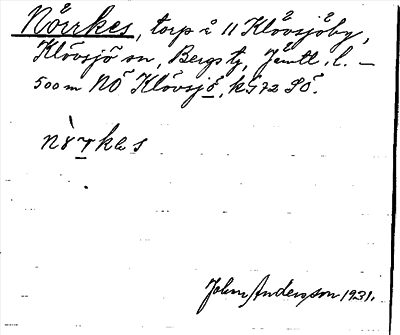 Nörrkes, torp i 11 Klövsjöby,
Klövsjö sn, Bergs tg, Jämtl. l. —
500 m NÖ Klövsjö, k 72 SÖ.
John Anderson 1931.